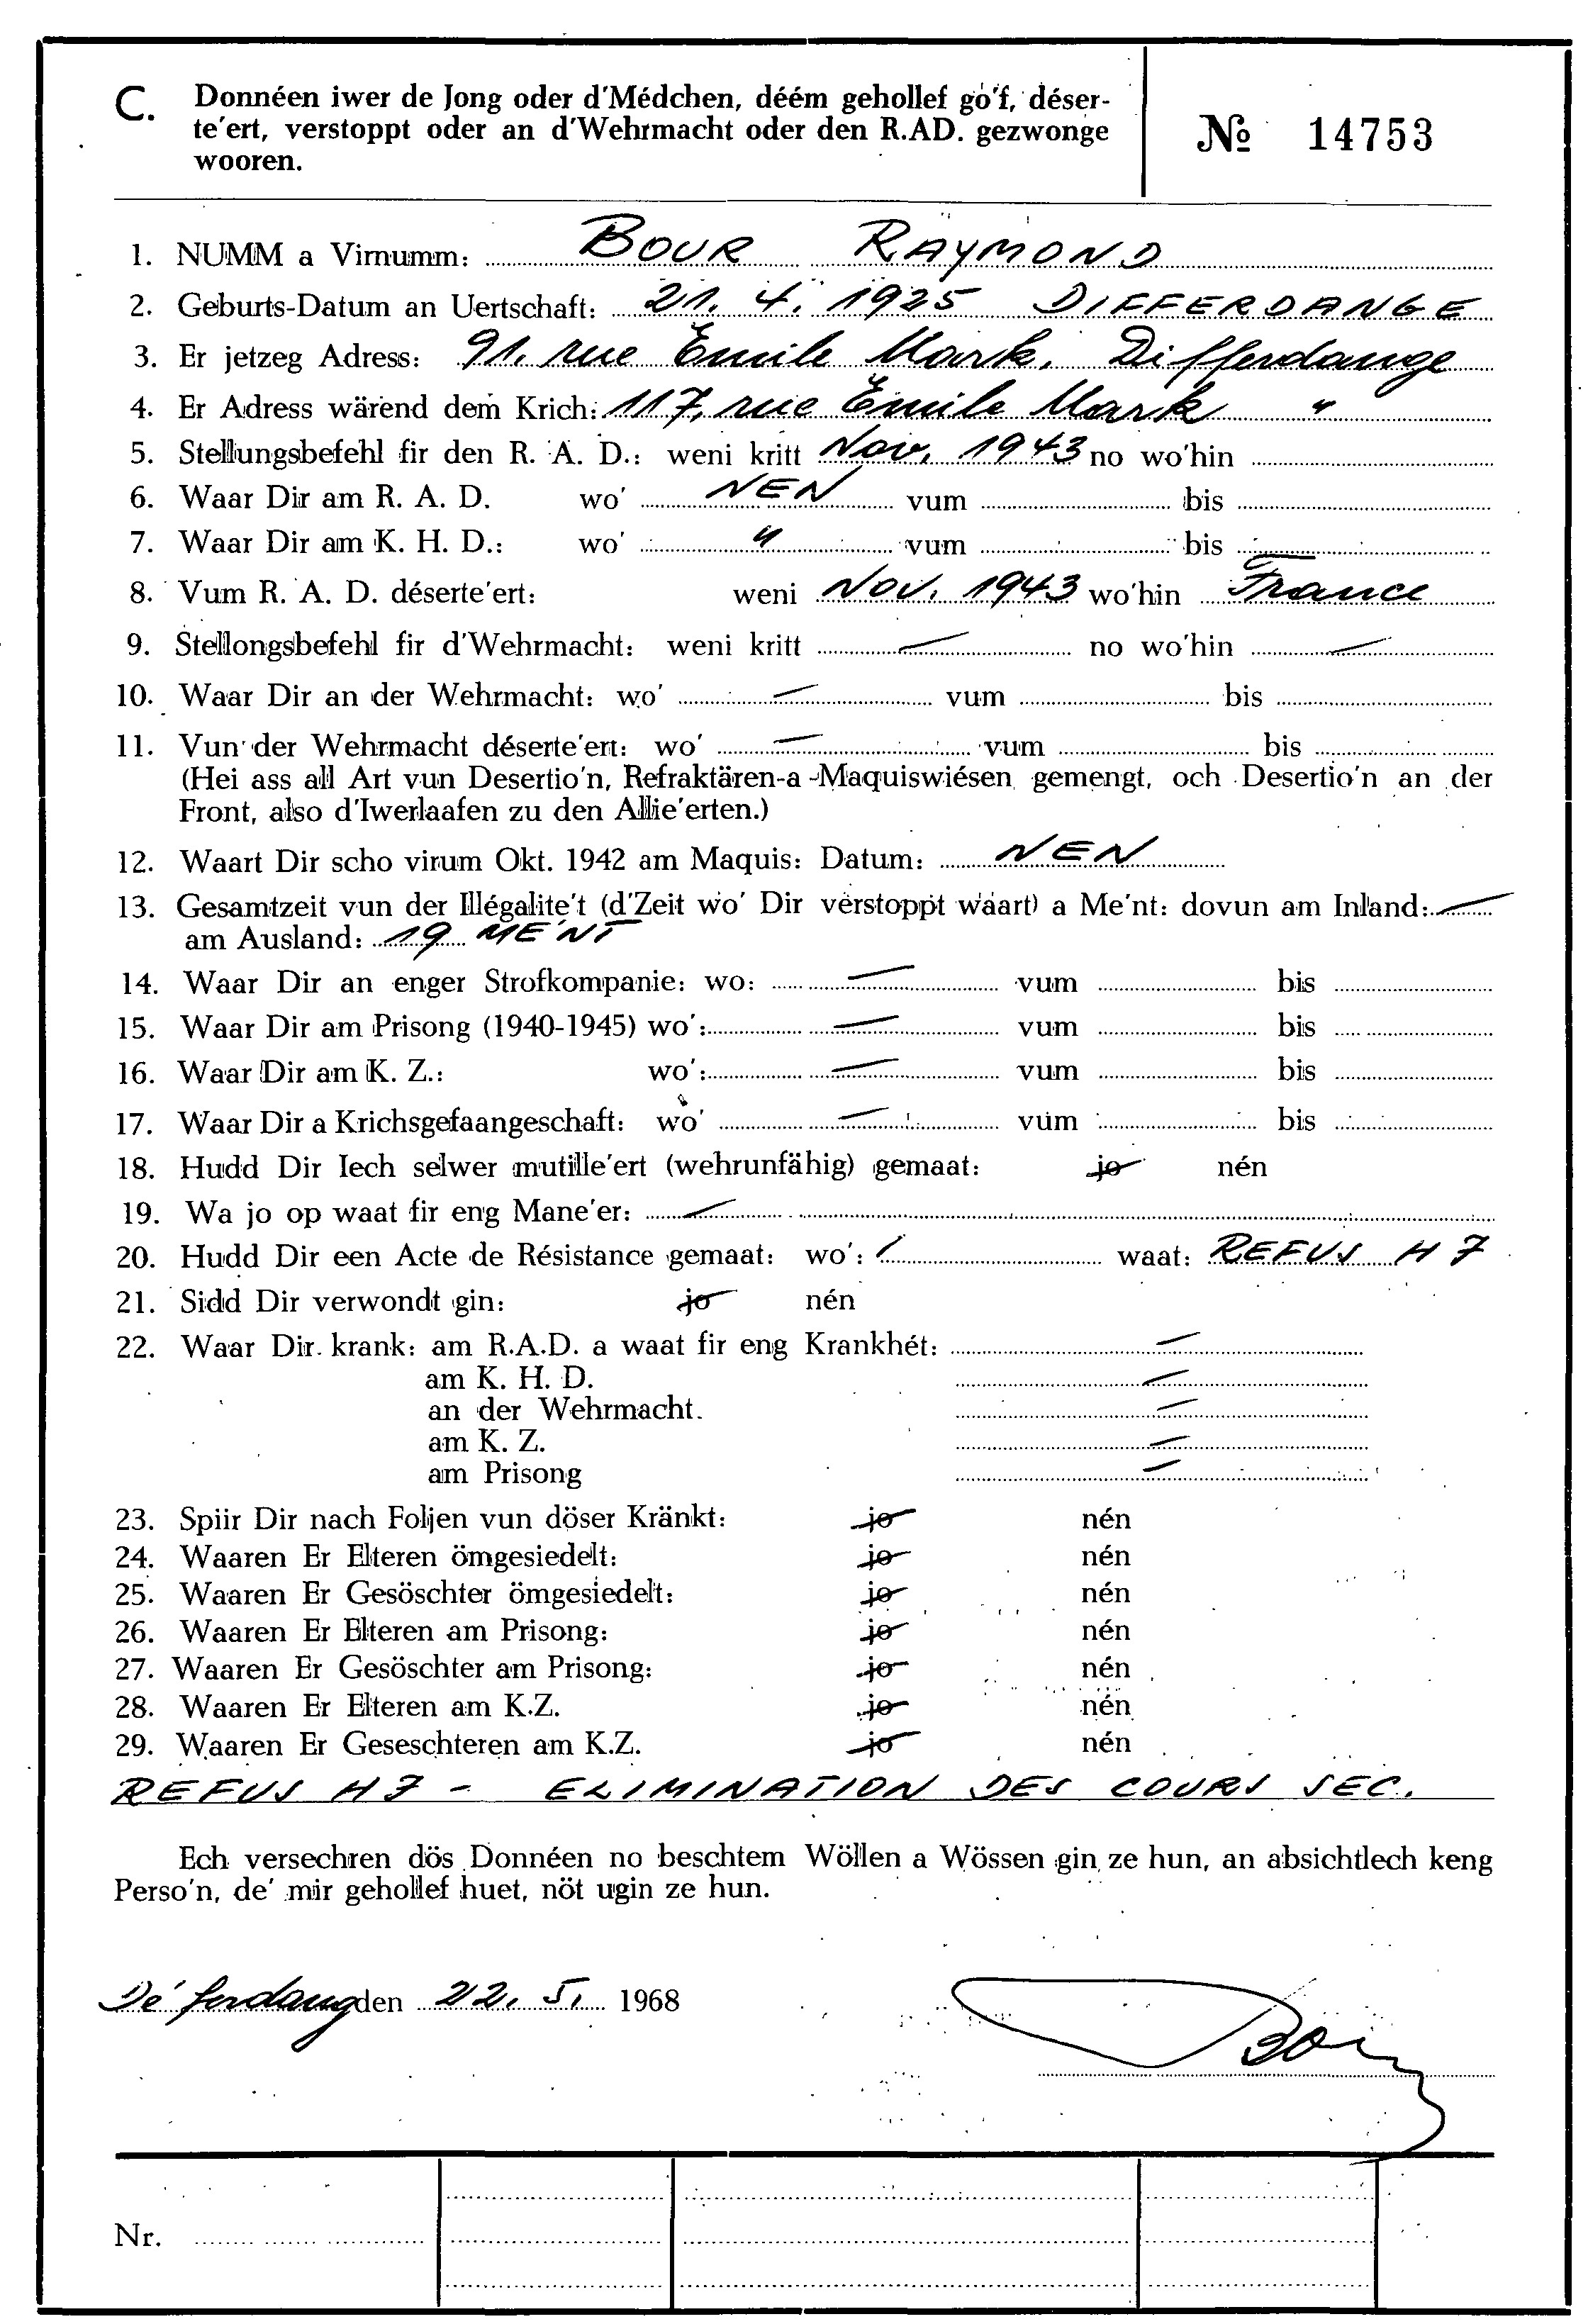 C. Donnéen iwer de Jong oder d'Médchen, déém gehollef go'f, déser-
te'ert, verstoppt oder an d'Wehrmacht oder den R.AD. gezwonge
wooren.
№ 14753
1. NUMM a Virnumm: BOUR RAYMOND
2. Geburts-Datum an Uertschaft: 21. 4. 1925 DIFFERDANGE
3. Er jetzeg Adress: 91, rue Emile Mark, Differdange
4. Er Adress wärend dem Krich: 117, rue Emile Mark "
5. Stellungsbefehl fir den R. A. D.: weni kritt Nov. 1943 no wo'hin
6. Waar Dir am R. A. D. wo' NEN vum bis
7. Waar Dir am K. H. D.: wo' " vum bis
8. Vum R. A. D. déserte'ert: weni Nov. 1943 wo'hin France
9. Stellongsbefehl fir d'Wehrmacht: weni kritt — no wo'hin —
10. Waar Dir an der Wehrmacht: wo' — vum bis
11. Vun der Wehrmacht déserte'ert: wo' — vum bis
(Hei ass all Art vun Desertio'n, Refraktären-a-Maquiswiésen gemengt, och Desertio'n an der
Front, also d'Iwerlaafen zu den Allie'erten.)
12. Waart Dir scho virum Okt. 1942 am Maquis: Datum: NEN
13. Gesamtzeit vun der Illégalite't (d'Zeit wo' Dir verstoppt waart) a Me'nt: dovun am Inland: —
am Ausland: 19 ME'NT
14. Waar Dir an enger Strofkompanie: wo: — vum bis
15. Waar Dir am Prisong (1940-1945) wo': — vum bis
16. Waar Dir am K. Z.: wo': — vum bis
17. Waar Dir a Krichsgefaangeschaft: wo' — vum bis
18. Hudd Dir Iech selwer mutille'ert (wehrunfähig) gemaat: jo nén
19. Wa jo op waat fir eng Mane'er: —
20. Hudd Dir een Acte de Résistance gemaat: wo': / waat: REFUS H7
21. Sidd Dir verwondt gin: jo nén
22. Waar Dir krank: am R.A.D. a waat fir eng Krankhét: —
am K. H. D. —
an der Wehrmacht. —
am K. Z. —
am Prisong —
23. Spiir Dir nach Foljen vun döser Kränkt: jo nén
24. Waaren Er Elteren ömgesiedelt: jo nén
25. Waaren Er Gesöschter ömgesiedelt: jo nén
26. Waaren Er Elteren am Prisong: jo nén
27. Waaren Er Gesöschter am Prisong: jo nén
28. Waaren Er Elteren am K.Z. jo nén
29. Waaren Er Geseschteren am K.Z. jo nén
REFUS H7 - ELIMINATION DES COURS SEC.
Ech versechren dös Donnéen no beschtem Wöllen a Wössen gin ze hun, an absichtlech keng
Perso'n, de' mir gehollef huet, nöt ugin ze hun.
Dé'ferdang den 22. 5. 1968
Nr.